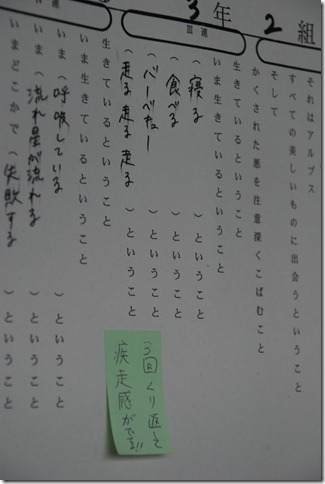 3年 2組
それはアルプス
すべての美しいものに出会うということ
そして
かくされた悪を注意深くこばむこと
Ⅲ連
生きているということ
いま生きているということ
(寝る)ということ
(食べる)ということ
(バーベキュー)ということ
(走る走る走る)ということ
連
生きているということ
いま生きているということ
いま(呼吸している)ということ
いま(流れ星が流れる)ということ
いまどこかで(失敗する)ということ
3回くり返して
疾走感がでる!!